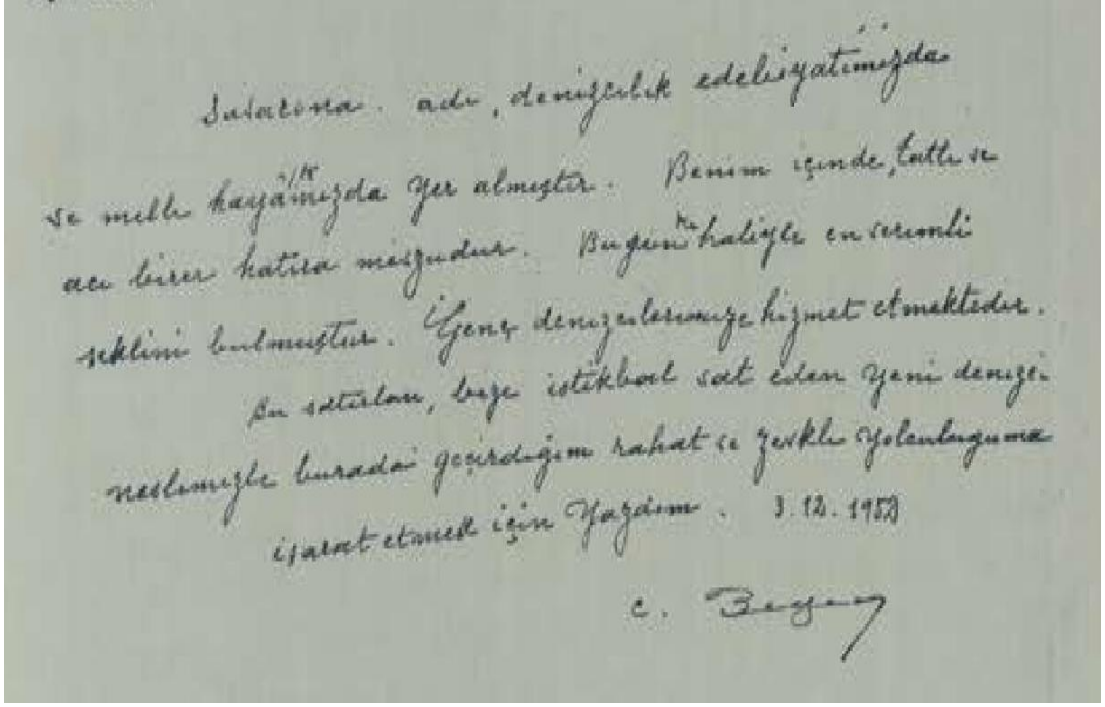 Savarona. adı, denizcilik edebiyatımızda
ve milli hayatımızda yer almıştır. Benim içinde, tatlı ve
acı birer hatıra mevzudur. Bugünkü haliyle en verimli
şeklini bulmuştur. Genç denizcilerimize hizmet etmektedir.
Bu satırları, bize istikbal vat eden yeni denizci
neslimizle burada geçirdiğim rahat ve zevkli yolculuğuma
işaret etmek için yazdım. 3.12.1952
C. Bayar